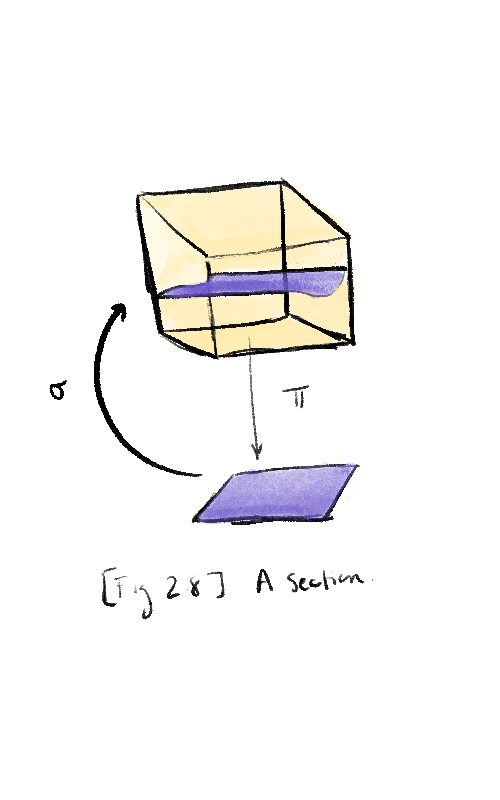 σ
π
[Fig 28] A section.